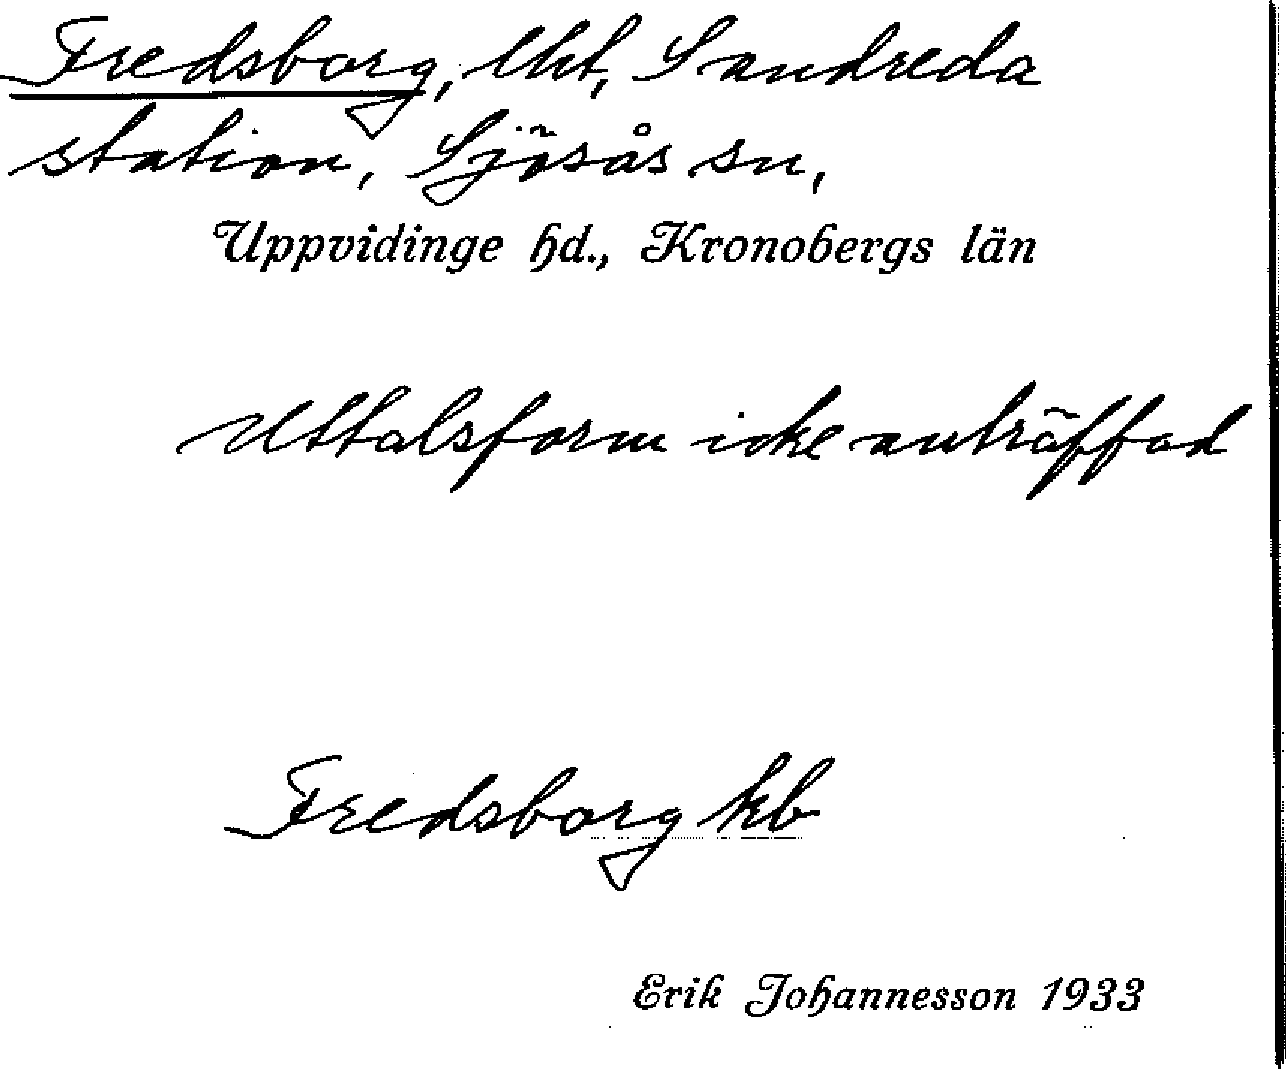 Fredsborg, lht, Sandreda
station, Sjösås sn,
Uppvidinge hd., Kronobergs län
Uttalsform icke anträffad
Fredsborg kb
Erik Johannesson 1933